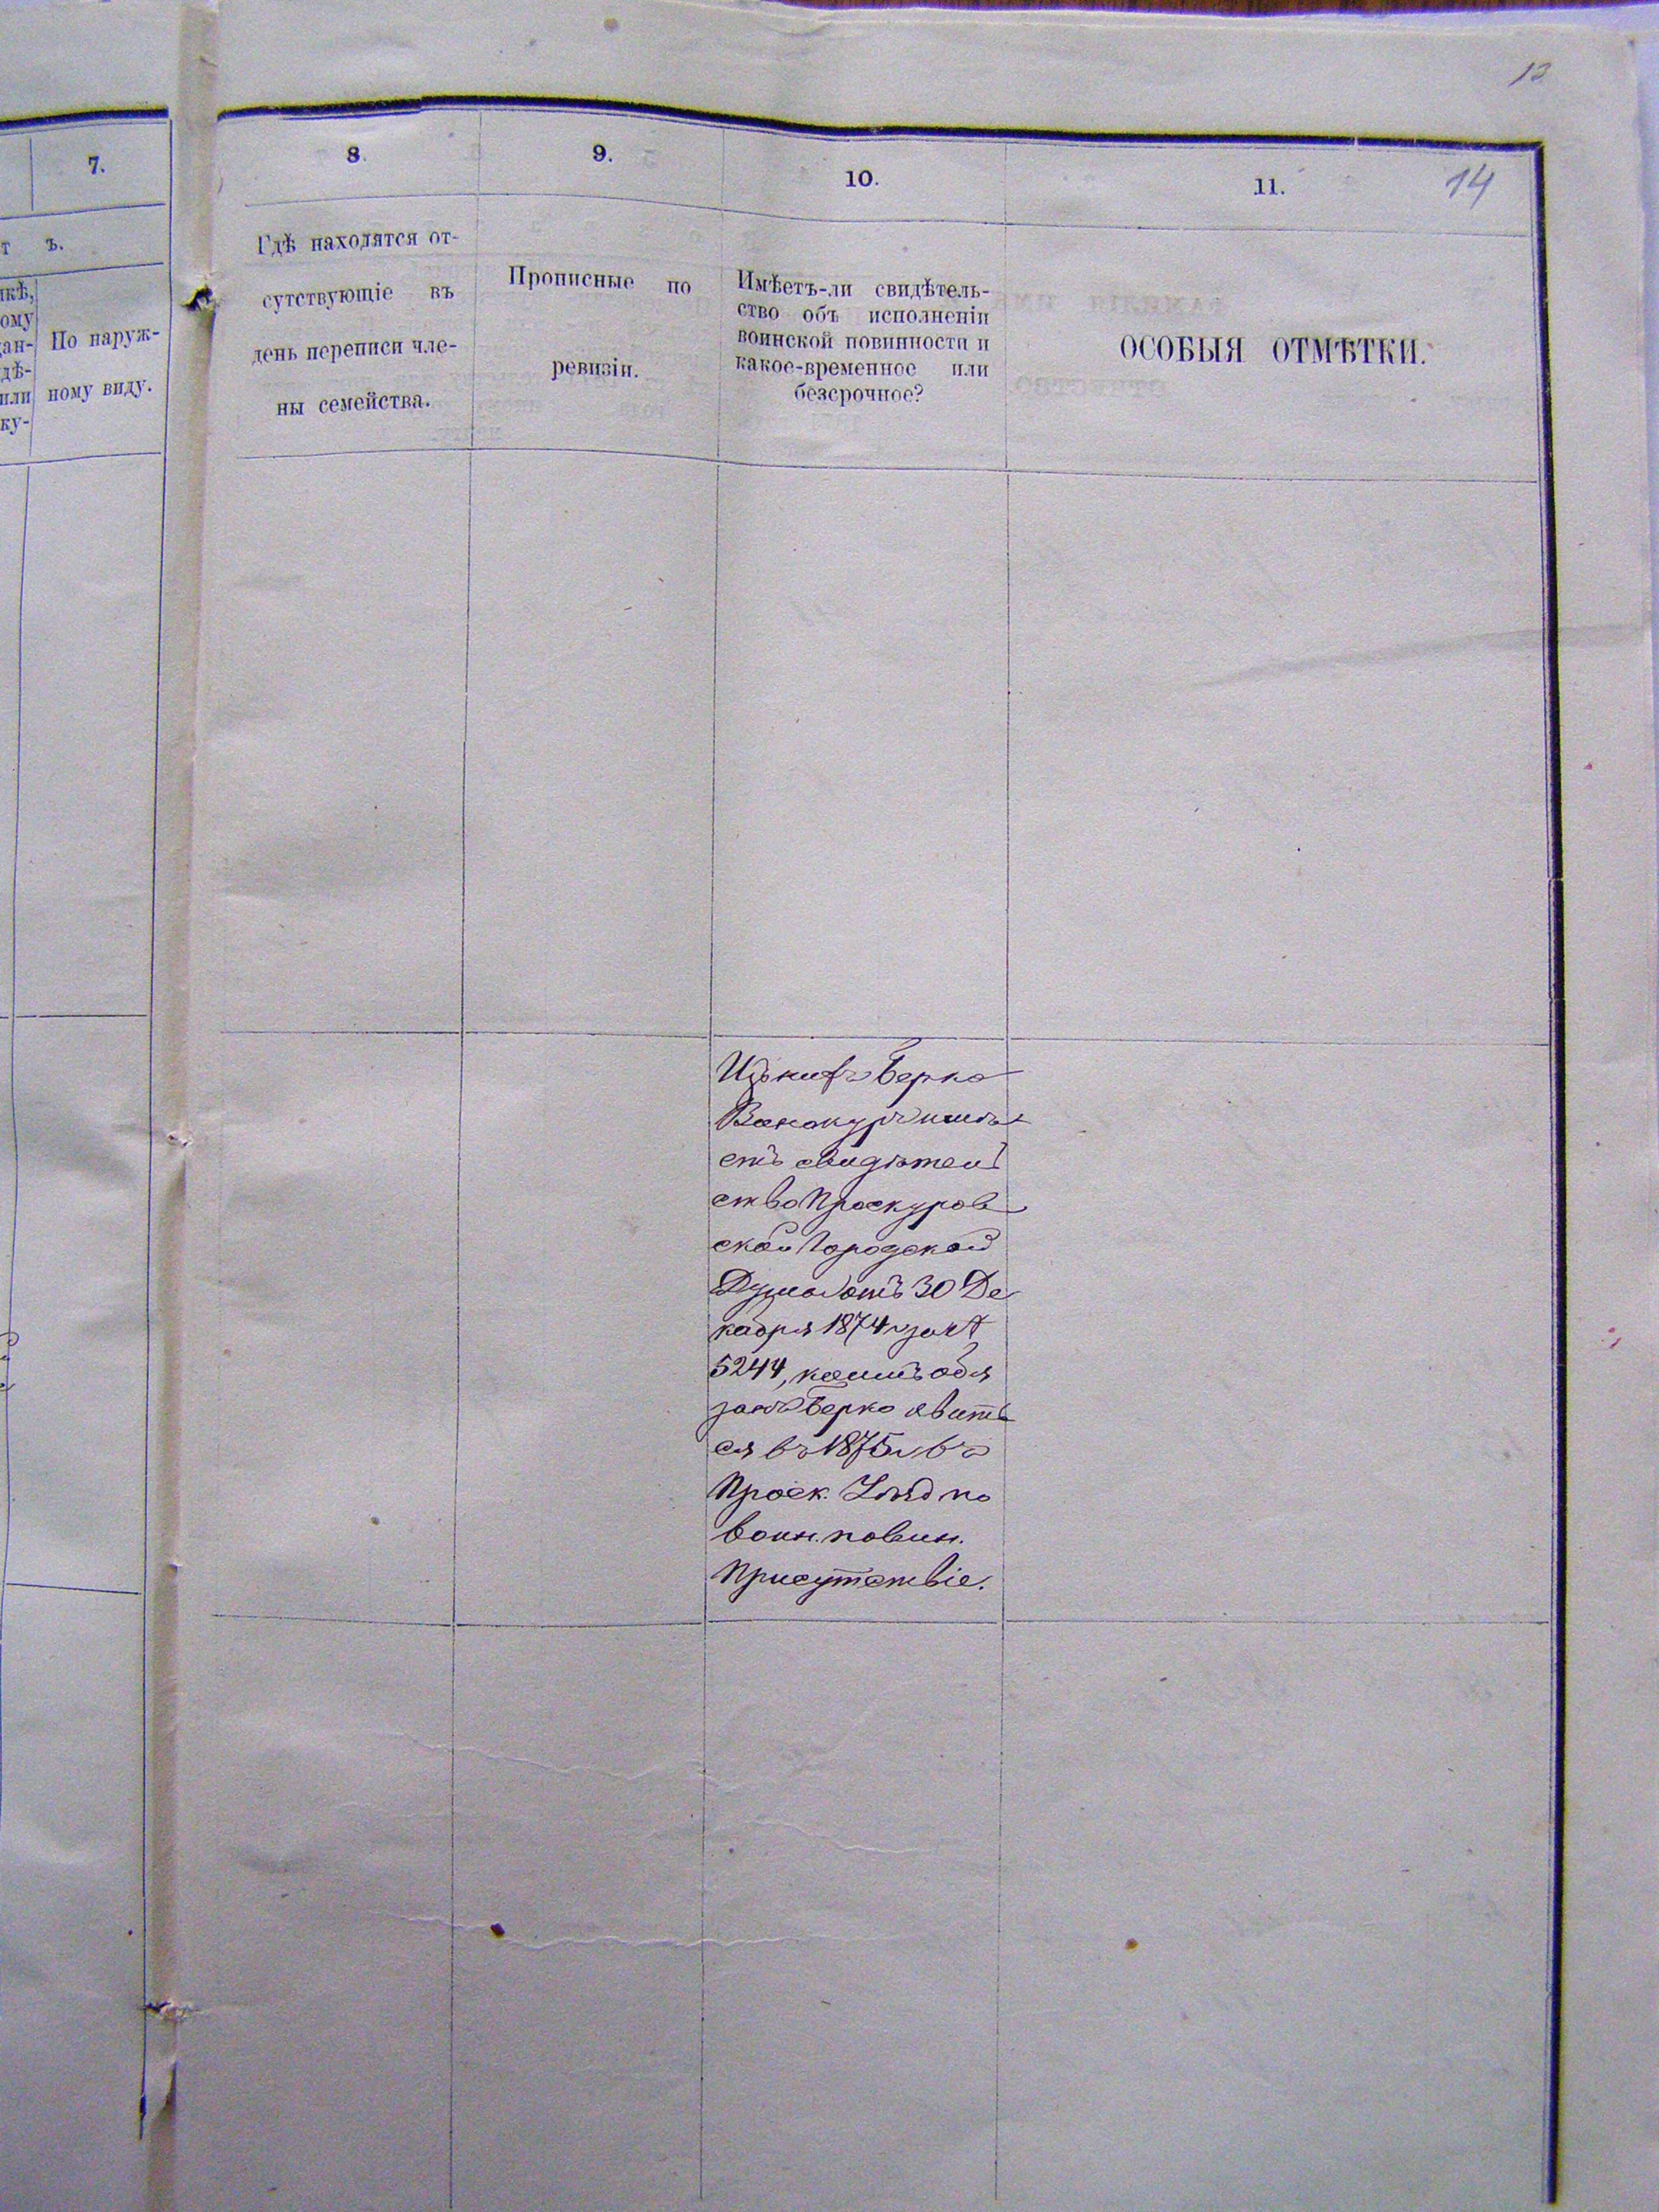 12
14
7.
8.
9.
10.
11.
т ъ.
По наруж-
ному виду.
Гдѣ находятся от-
сутствующіе въ
день переписи чле-
ны семейства.
Прописные по
ревизіи.
Имѣетъ-ли свидѣтель-
ство объ исполненіи
воинской повинности и
какое-временное или
безсрочное?
ОСОБЫЯ ОТМѢТКИ.
Ицькивъ Берко
Винокуръ имѣ
етъ свидѣтель
ство Проскуров
ской Городской
Думы отъ 30 Де
кабря 1874 за №
5244, коимъ обя
занъ Берко явить
ся въ 1875 въ
Проск. Уѣзд по
воин. повин.
Присутствіе.